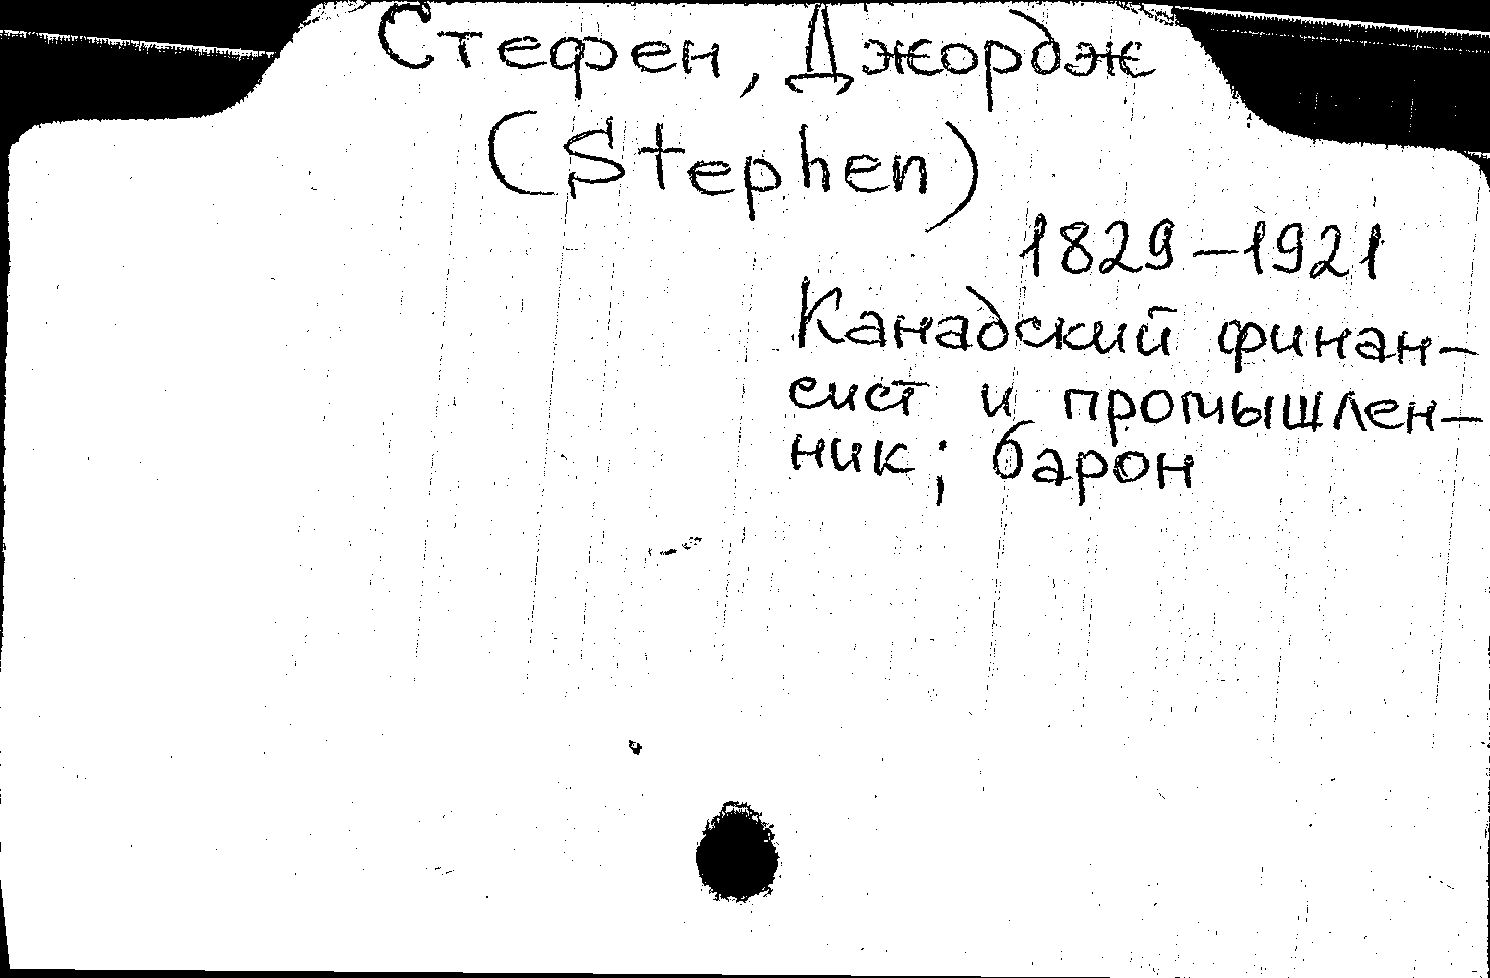 Стефен, Джордж
(Stephen)
1829–1921
Канадский финан-
сист и промышлен-
ник; барон